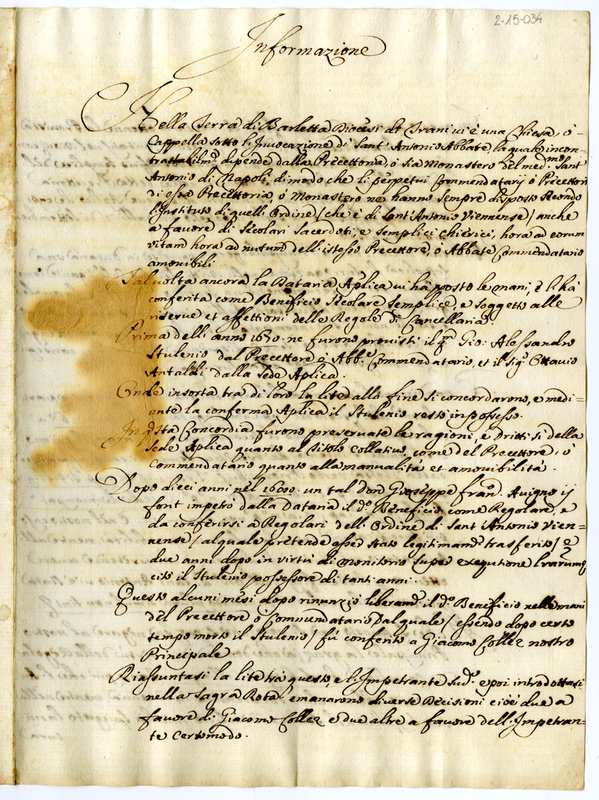 2-15-034
Informazione
Nella Terra di Barletta Diocesi di Trani vi è una Chiesa, ò
Cappella sotto l'Invocazione di Sant' Antonio Abbate, la quale incon-
dipende dalla Precettoria, ò sia Monastero del med.mo Sant'
Antonio di Napoli, di modo che li perpetui Commendatarij ò Precettori
di essa Precettoria, ò Monastero ne hanno sempre disposto secondo
l'Instituto di quell' Ordine (che è di Sant' Antonio Viennense) anche
a favore di Secolari Sacerdoti, e semplici Chierici, hora ad eorum
vitam hora ad nutum dell' istesso Precettore, ò Abbate Commendatario
amovibili
Talvolta ancora la Dataria Aplica vi hà posto le mani, e l'hà
conferita come Beneficio Secolare semplice, e soggetto alle
riserve et affettioni delle Regole di Cancellaria.
Prima delli anno 1670. ne furono provisti il Gio: Alessandro
Stulenio dal Precettore ò Abb.e Commendatario, et il Sig.r Ottavio
Antaldi dalla Sede Aplica.
Onde insorta trà di loro la lite alla fine si concordarono, e medi-
ante la conferma Aplica il Stulenio restò in possesso.
In qsta Concordia furono preservate le ragioni, e dritti sì della
Sede Aplica quanto al titolo collativo, come del Precettore, ò
Commendatario quanto alla manualità et amovibilità.
Dopo dieci anni nel un tal Don Giuseppe Fran.o
impetrò dalla Dataria il d.o Beneficio come Regolare, e
da conferirsi à Regolari dell' Ordine di Sant' Antonio Vien-
nense (al quale pretende esser stato legitimam.te trasferito) e
due anni dopo in virtù di Monitorio super exequtione
citò il Stulenio possessore di tanti anni.
Questo alcuni mesi dopo rinunziò liberam.te il d.o Beneficio nelle mani
del Precettore ò Commendatario dal quale (essendo dopo certo
tempo morto il Stulenio) fù conferito à Giacomo Collez nostro
Principale
Riassuntasi la lite trà questo, e l'Impetrante Sud.o e poi introdottasi
nella Sagra Rota emanarono diverse Decisioni cioè due a
favore di Giacomo Collez e due altre a favore dell' Impetran-
te